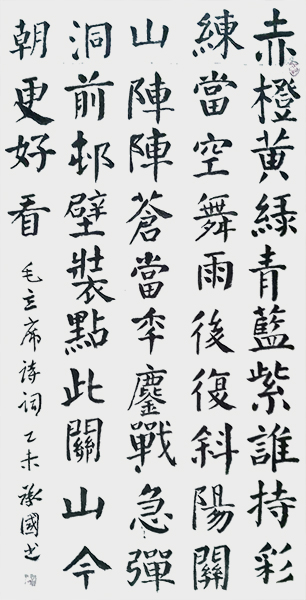 赤橙黄綠青藍紫誰持彩
練當空舞雨後復斜陽關
山陣陣蒼當秊鏖戰急彈
洞前邨壁裝點此關山今
朝更好看
毛主席诗词乙未承國书